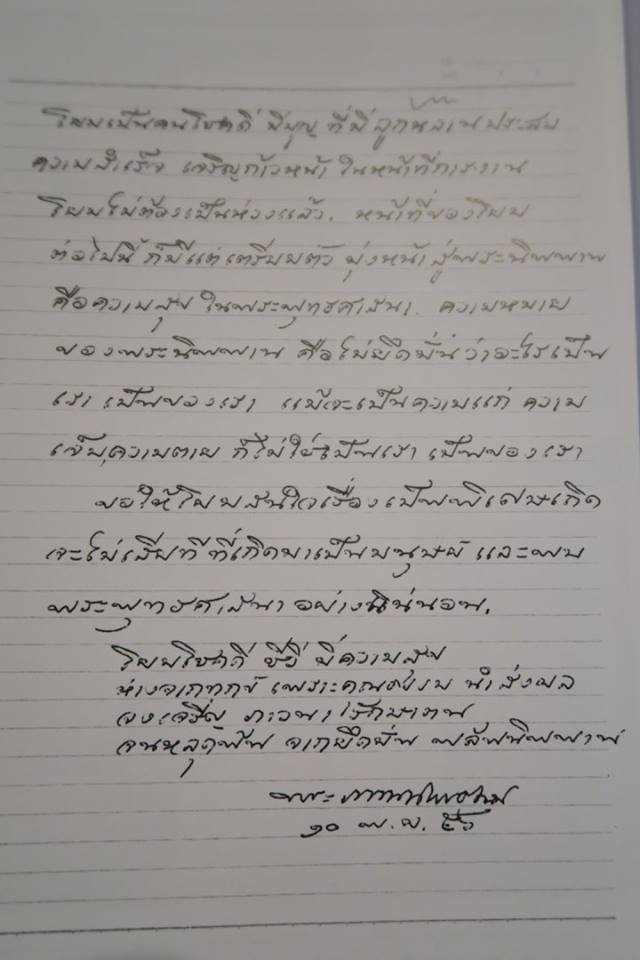 โยมเป็นคนโชคดี มีบุญ ที่มีลูกหลานประสบ
ความสำเร็จ เจริญก้าวหน้า ในหน้าที่การงาน
โยมไม่ต้องเป็นห่วงแล้ว. หน้าที่ของโยม
ต่อไปนี้ ก็มีแต่เตรียมตัว มุ่งหน้าสู่พระนิพพาน
คือความสุข ในพระพุทธศาสนา. ความหมาย
ของพระนิพพาน คือไม่ยึดมั่นว่าอะไรเป็น
เรา เป็นของเรา แม้จะเป็นความแก่ ความ
เจ็บ ความตาย ก็ไม่ใช่เป็นเรา เป็นของเรา
ขอให้โยมสนใจเรื่องเป็นพิเศษเถิด
จะไม่เสียทีที่เกิดมาเป็นมนุษย์ และพบ
พระพุทธศาสนาอย่างแน่นอน.
โยมโชคดี มีความสุข
ห่างจากทุกข์ เพราะคุณธรรม นำส่งผล
จงเจริญ ภาวนา รักษาตน
จนหลุดพ้น จากยึดมั่น พลันนิพพาน
พระ
๑๐ พ.ย. ๕๖